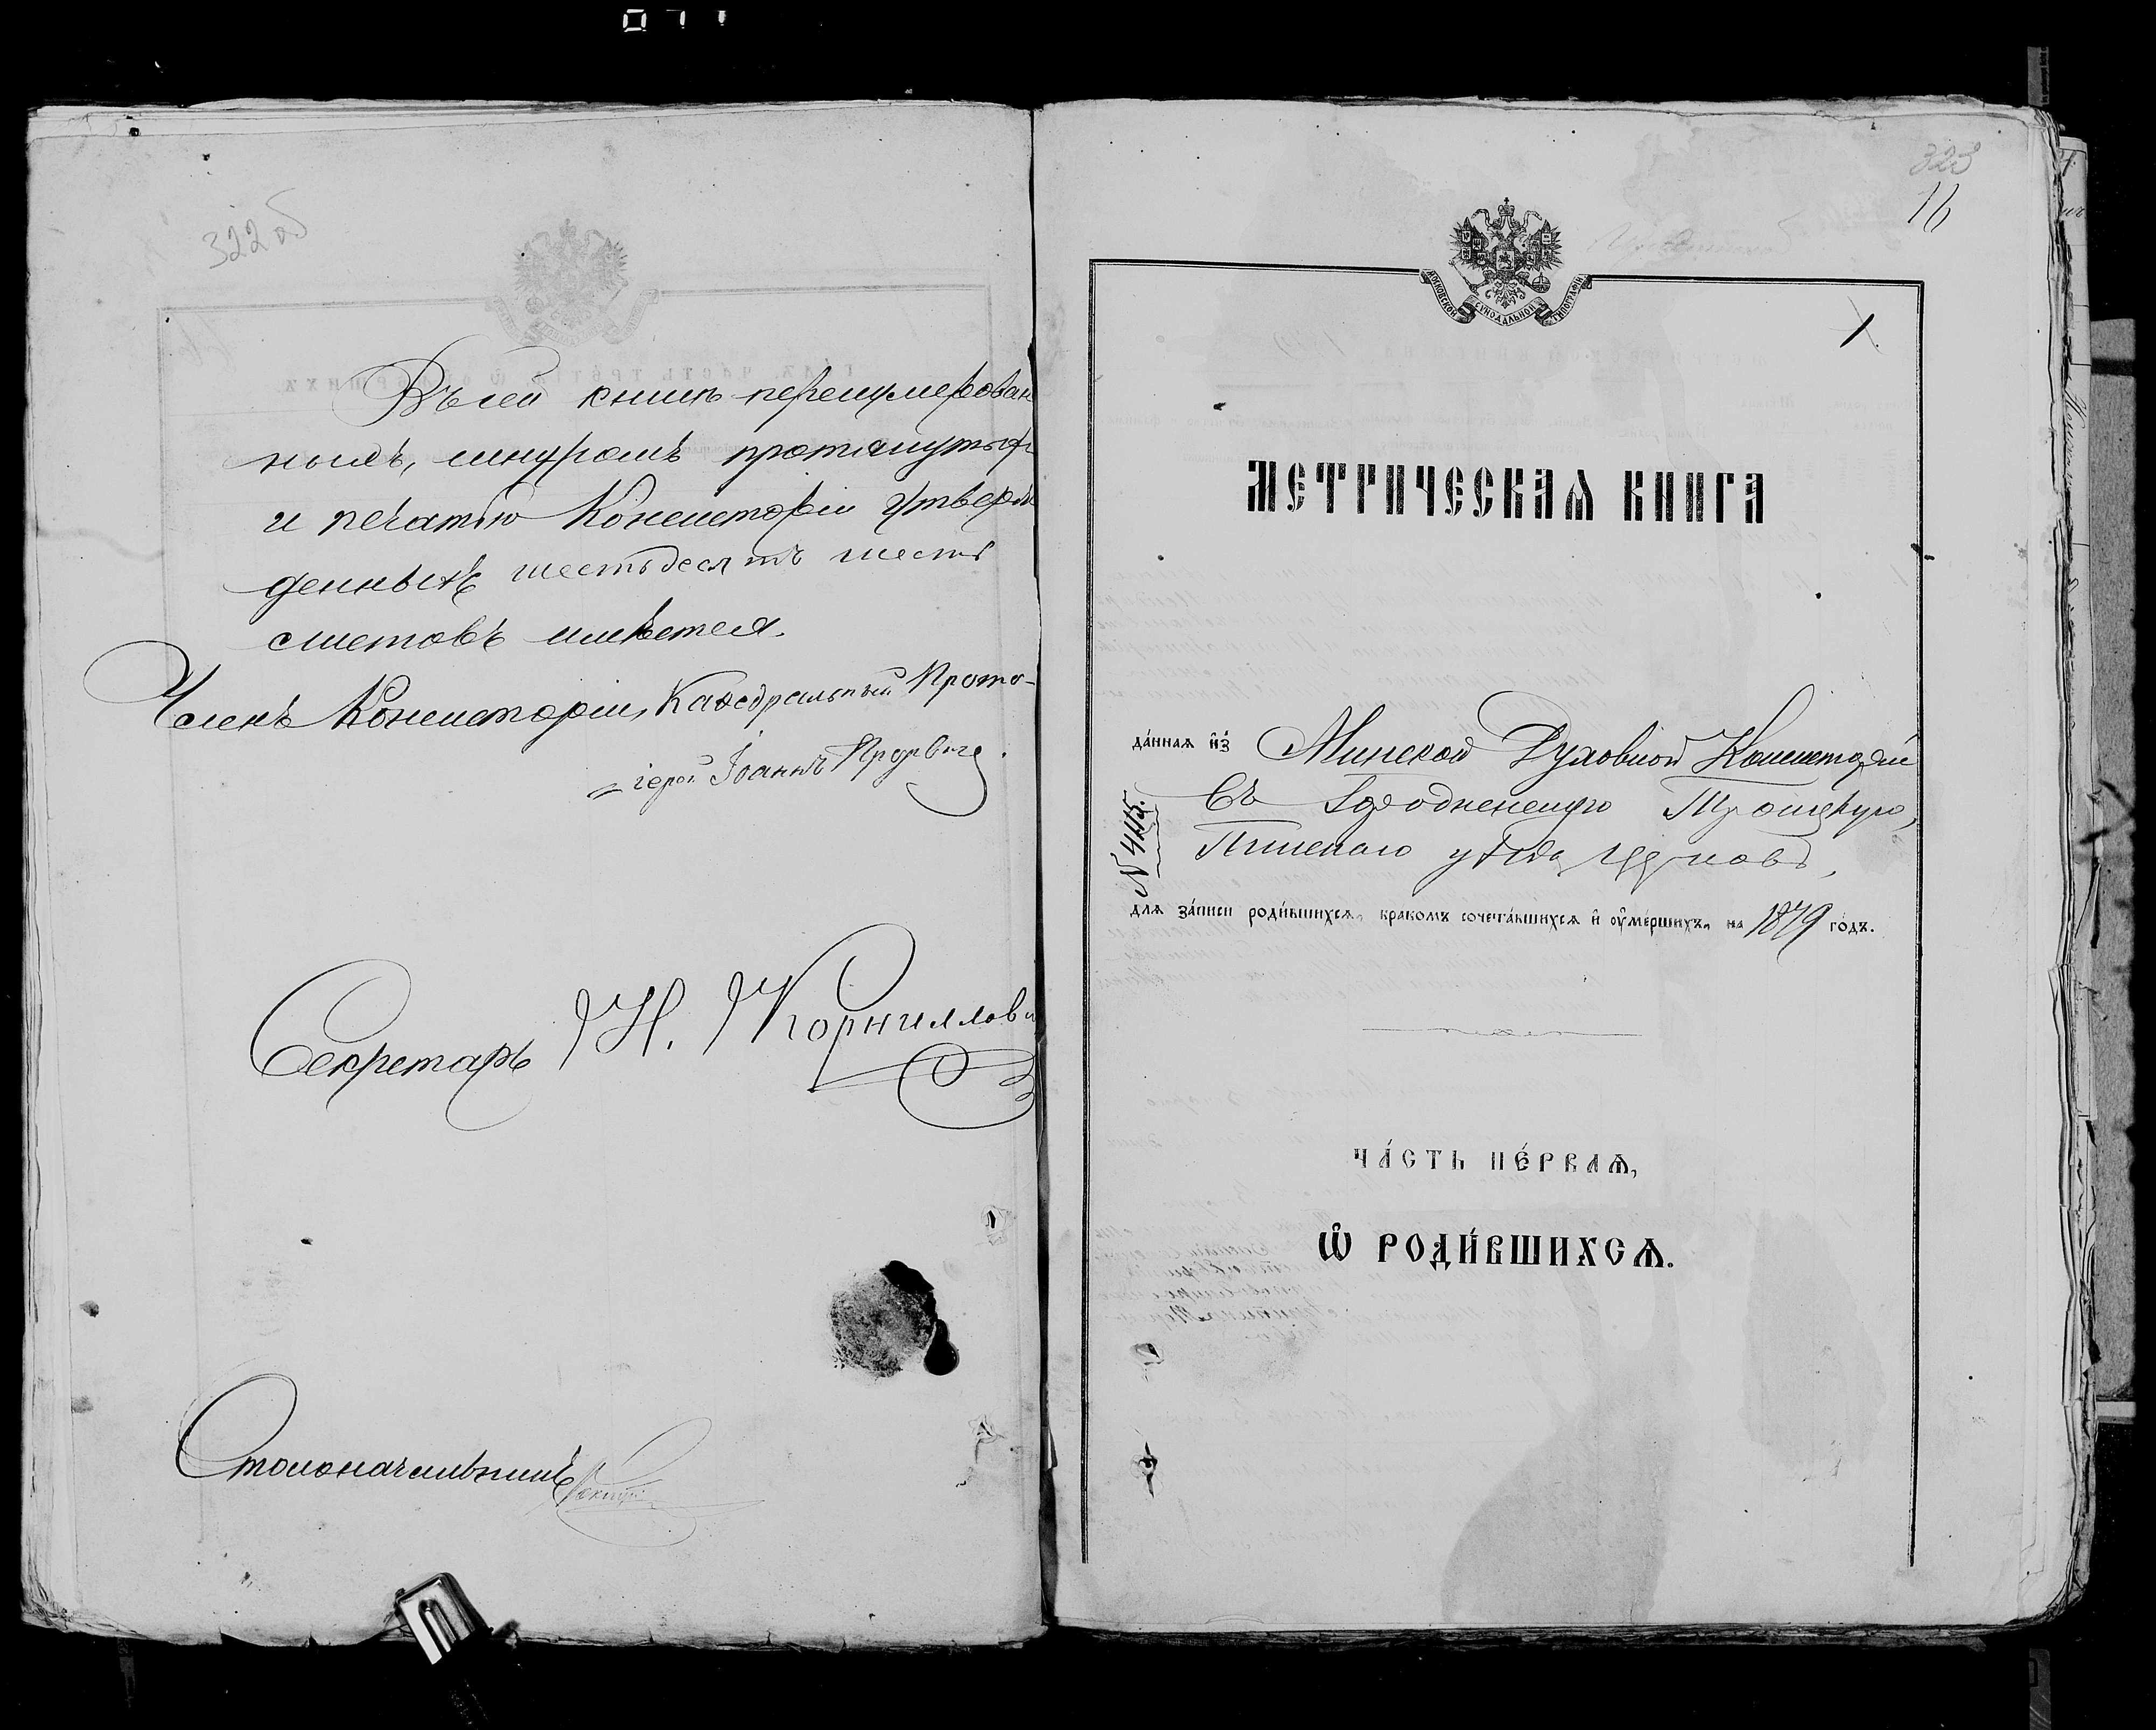 071
322 об
Въ сей книгѣ перенумерован
ныхъ, шнуромъ протянутыхъ
и печатью Консисторіи утверж
денныхъ шестьдесятъ шесть
листовъ имѣется.
Членъ Консисторіи, Каѳедральный Прото-
іерей Іоаннъ
Секретарь Н. Корнилови
Столоначальникъ
323
16
МОСКОВСКОЙ СѴНОДАЛЬНОЙ ТИПОГРАФІИ
1.
МЕТРИЧЕСКАѦ КНИГА
да́ннаѧ и҆з̾ Минской Духовной Консисторіи
Въ Городненскую Троицкую,
Пинскаго уѣзда церковь,
№ 415.
длѧ за́писи роди́вшихсѧ, бракомъ сочета́вшихсѧ и҆ ᲂу҆ме́ршихъ, на 1879 го́дъ.
ЧА́СТЬ ПЕ́РВАѦ,
Ѡ҆ РОДИ́ВШИХСѦ.